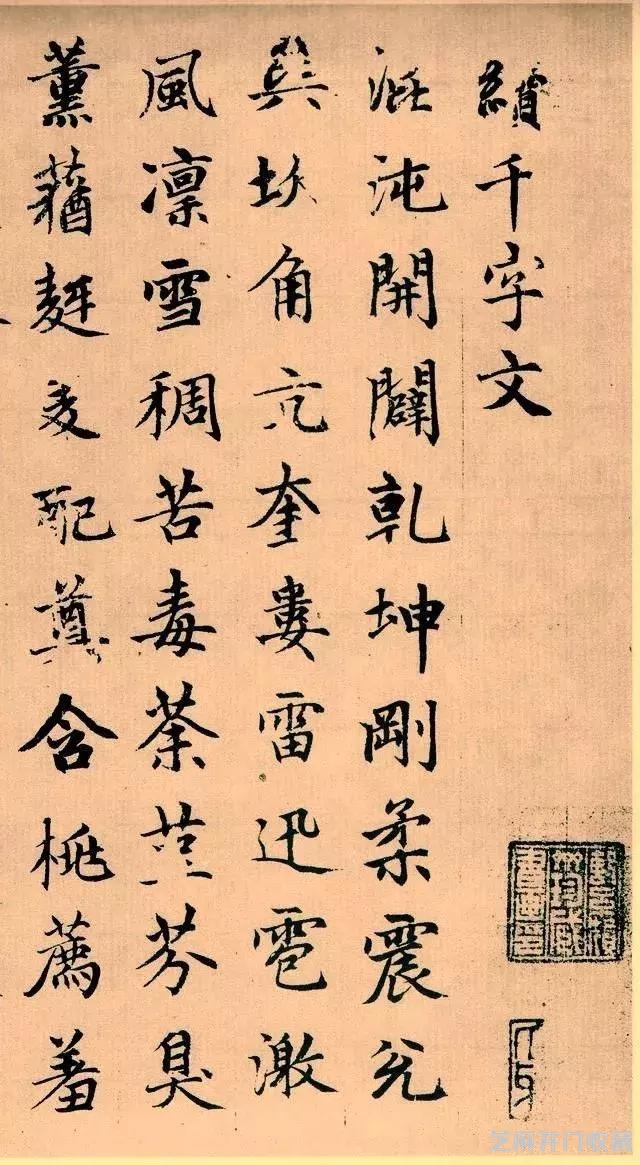 續千字文
混沌開闢乾坤剛柔震兌
巽坎角亢奎婁雷迅雹激
風凜雪稠苦毒荼芬臭
薰蕕麰麥配含桃薦羞
芝麻开门收藏